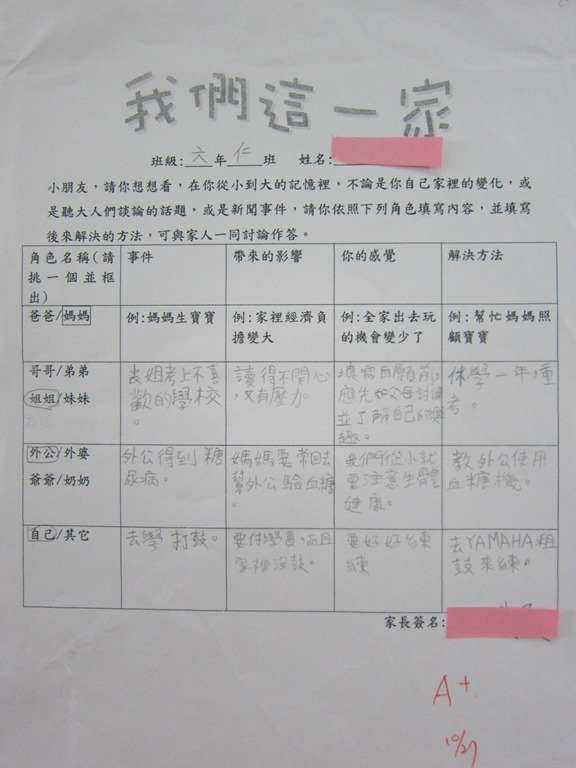 我們這一家
班級:六年仁班 姓名:
小朋友，請你想想看，在你從小到大的記憶裡，不論是你自己家裡的變化，或
是聽大人們談論的話題，或是新聞事件，請你依照下列角色填寫內容，並填寫
後來解決的方法，可與家人一同討論作答。
角色名稱(請
挑一個並框
出)
事件
帶來的影響
你的感覺
解決方法
爸爸/媽媽
例:媽媽生寶寶
例:家裡經濟負
擔變大
例:全家出去玩
的機會變少了
例:幫忙媽媽照
顧寶寶
哥哥/弟弟
姐姐/妹妹
表姐考上不喜
歡的學校
。
讀得不開心
,又有壓力。
填寫自願前,
應先和父母討論
並了解自己的興
趣。
休學一年,重
考。
外公/外婆
爺爺/奶奶
外公得到糖
尿病。
媽媽要常回去
幫外公驗血糖
。
我們從小就
要注意生體
健康。
教外公使用
血糖機。
自己/其它
去學打鼓。
要付學費,而且
家裡沒鼓。
要好好
練
去YAMAHA租
鼓來練。
家長簽名:
A+
10/27